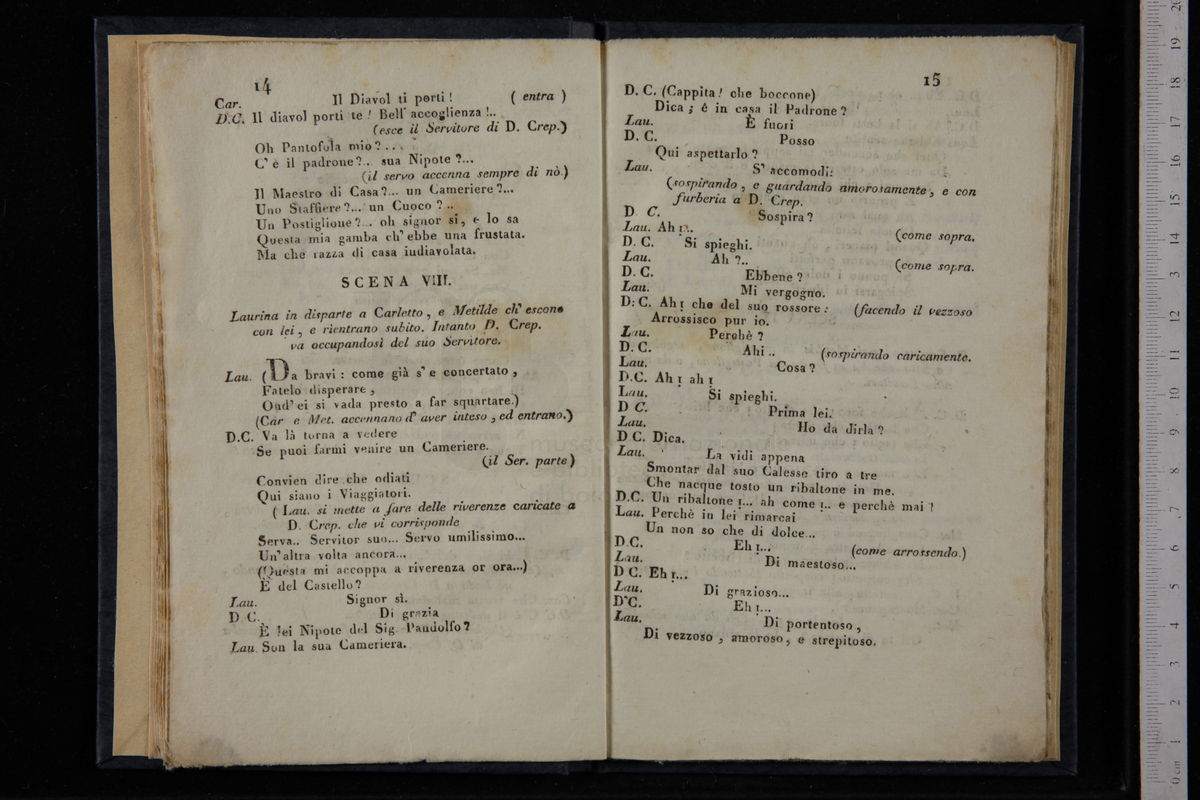 14
Car. Il Diavol ti porti! ( entra )
D.C. Il diavol porti te! Bell' accoglienza!..
(esce il Servitore di D. Crep.)
Oh Pantofola mio?...
C' è il padrone?.. sua Nipote?...
(il servo accenna sempre di nò.)
Il Maestro di Casa?... un Cameriere?...
Uno Staffiere?... un Cuoco?..
Un Postiglione?.. oh signor sì, e lo sa
Questa mia gamba ch' ebbe una frustata.
Ma che razza di casa indiavolata.
SCENA VIII.
Laurina in disparte a Carletto, e Metilde ch' escono
con lei, e rientrano subito. Intanto D. Crep.
va occupandosi del suo Servitore.
Lau. (Da bravi: come già s' è concertato,
Fatelo disperare,
Ond' ei si vada presto a far squartare.)
(Car e Met. accennano d' aver inteso, ed entrano.)
D.C. Va là torna a vedere
Se puoi farmi venire un Cameriere.
(il Ser. parte)
Convien dire che odiati
Qui siano i Viaggiatori.
( Lau. si mette a fare delle riverenze caricate a
D. Crep. che vi corrisponde
Serva.. Servitor suo... Servo umilissimo...
Un' altra volta ancora...
(Questa mi accoppa a riverenza or ora...)
È del Castello?
Lau. Signor sì.
D C. Di grazia
È lei Nipote del Sig. Pandolfo?
Lau. Son la sua Cameriera.
15
D. C. (Cappita! che boccone)
Dica; é in casa il Padrone?
Lau. È fuori
D. C. Posso
Qui aspettarlo?
Lau. S' accomodi:
(sospirando, e guardando amorosamente, e con
furberia a D. Crep.
D C. Sospira?
Lau. Ah!.. (come sopra.
D. C. Si spieghi.
Lau. Ah?.. (come sopra.
D. C. Ebbene?
Lau. Mi vergogno.
D. C. Ah! che del suo rossore: (facendo il vezzoso
Arrossisco pur io.
Lau. Perchè?
D. C. Ahi.. (sospirando caricamente.
Lau. Cosa?
D.C. Ah! ah!
Lau. Si spieghi.
D C. Prima lei.
Lau. Ho da dirla?
D C. Dica.
Lau. La vidi appena
Smontar dal suo Calesse tiro a tre
Che nacque tosto un ribaltone in me.
D.C. Un ribaltone!... ah come!.. e perchè mai?
Lau. Perchè in lei rimarcai
Un non so che di dolce...
D.C. Eh!... (come arrossendo.)
Lau. Di maestoso...
D C. Eh!...
Lau. Di grazioso...
D C. Eh!...
Lau. Di portentoso,
Di vezzoso, amoroso, e strepitoso.